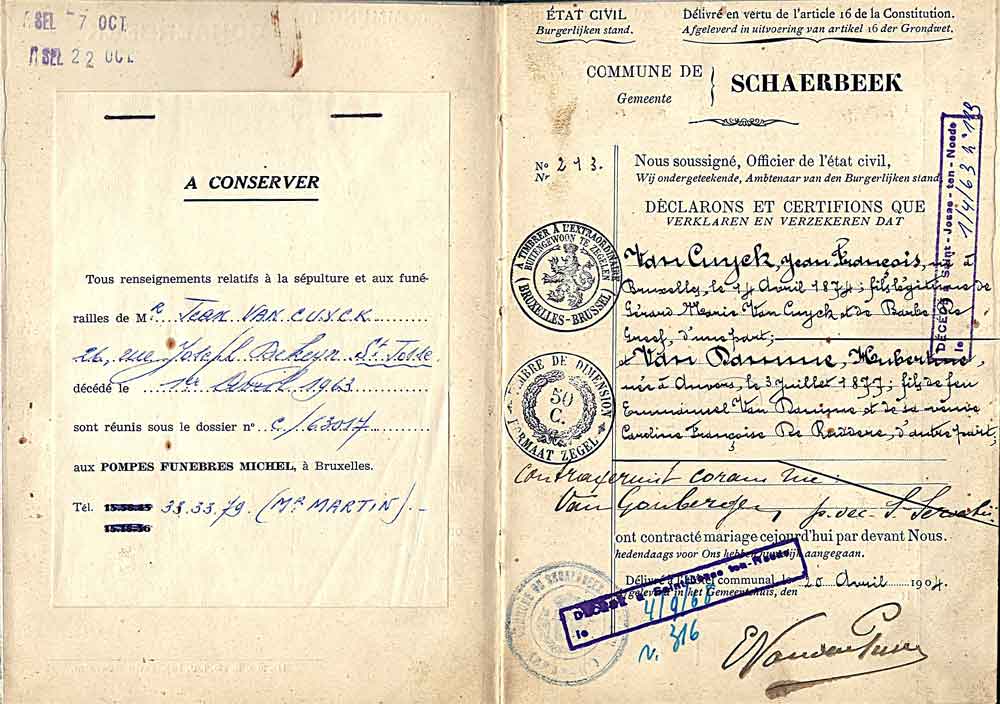 SEL 7 OCT
SEL 22 OCT
A CONSERVER
Tous renseignements relatifs à la sépulture et aux funé-
railles de Mr Jean VAN CUYCK
26, rue Joseph St Josse
décédé le 1er Avril 1963
sont réunis sous le dossier no C/63017
aux POMPES FUNEBRES MICHEL, à Bruxelles.
Tél. 33.33.79 (Mr MARTIN).-
ÉTAT CIVIL
Burgerlijken stand.
Délivré en vertu de l'article 16 de la Constitution.
Afgeleverd in uitvoering van artikel 16 der Grondwet.
COMMUNE DE
Gemeente
SCHAERBEEK
No
Nr
213.
Nous soussigné, Officier de l'état civil,
Wij ondergeteekende, Ambtenaar van den Burgerlijken stand
DÉCLARONS ET CERTIFIONS QUE
VERKLAREN EN VERZEKEREN DAT
Van Cuyck, Jean François, né à
Bruxelles, le 14 Avril 1874; fils légitime de
Gérard Marie Van Cuyck et de Barbe De
Greef, d'une part;
et Van Damme, Hubertine,
née à Anvers, le 3 Juillet 1877; fille de feu
Emmanuel Van Damme, et de sa veuve
Caroline Françoise De Raddere, d'autre part,
contraxerunt coram me
p. dec. S. Servatii
ont contracté mariage cejourd'hui par devant Nous.
hedendaags voor Ons hebben huwelijk aangegaan.
Délivré à l'hôtel communal, le 20 Avril 1904.
Afgeleverd in het Gemeentehuis, den
A TIMBRER A L'EXTRAORDINAIRE
BUITENGEWOON TE ZEGELEN
BRUXELLES-BRUSSEL
TIMBRE DE DIMENSION
50
C.
FORMAAT ZEGEL
DÉCÉDÉ à Saint-Josse-ten-Noode
le 1/4/63 no 119
DÉCÉDÉ à Saint-Josse-ten-Noode
le 4/9/68
n. 316